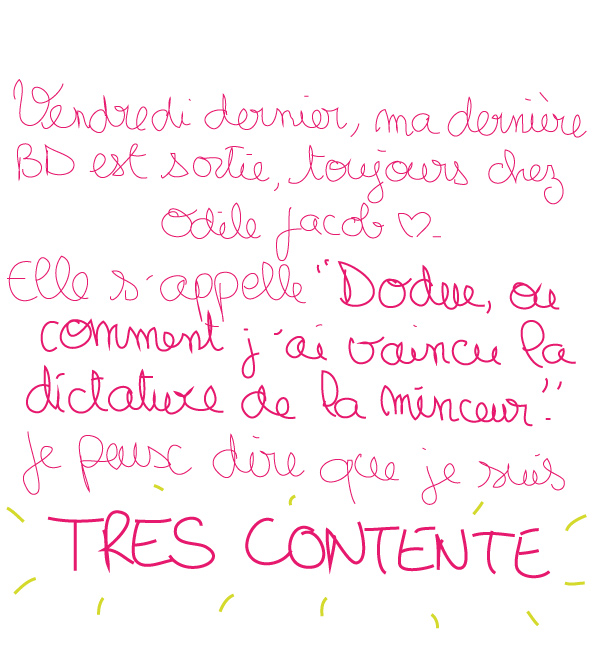 Vendredi dernier, ma dernière
BD est sortie, toujours chez
Odile Jacob ♡.
Elle s'appelle "Dodue, ou
comment j'ai vaincu la
dictature de la minceur".
Je peux dire que je suis
TRES CONTENTE